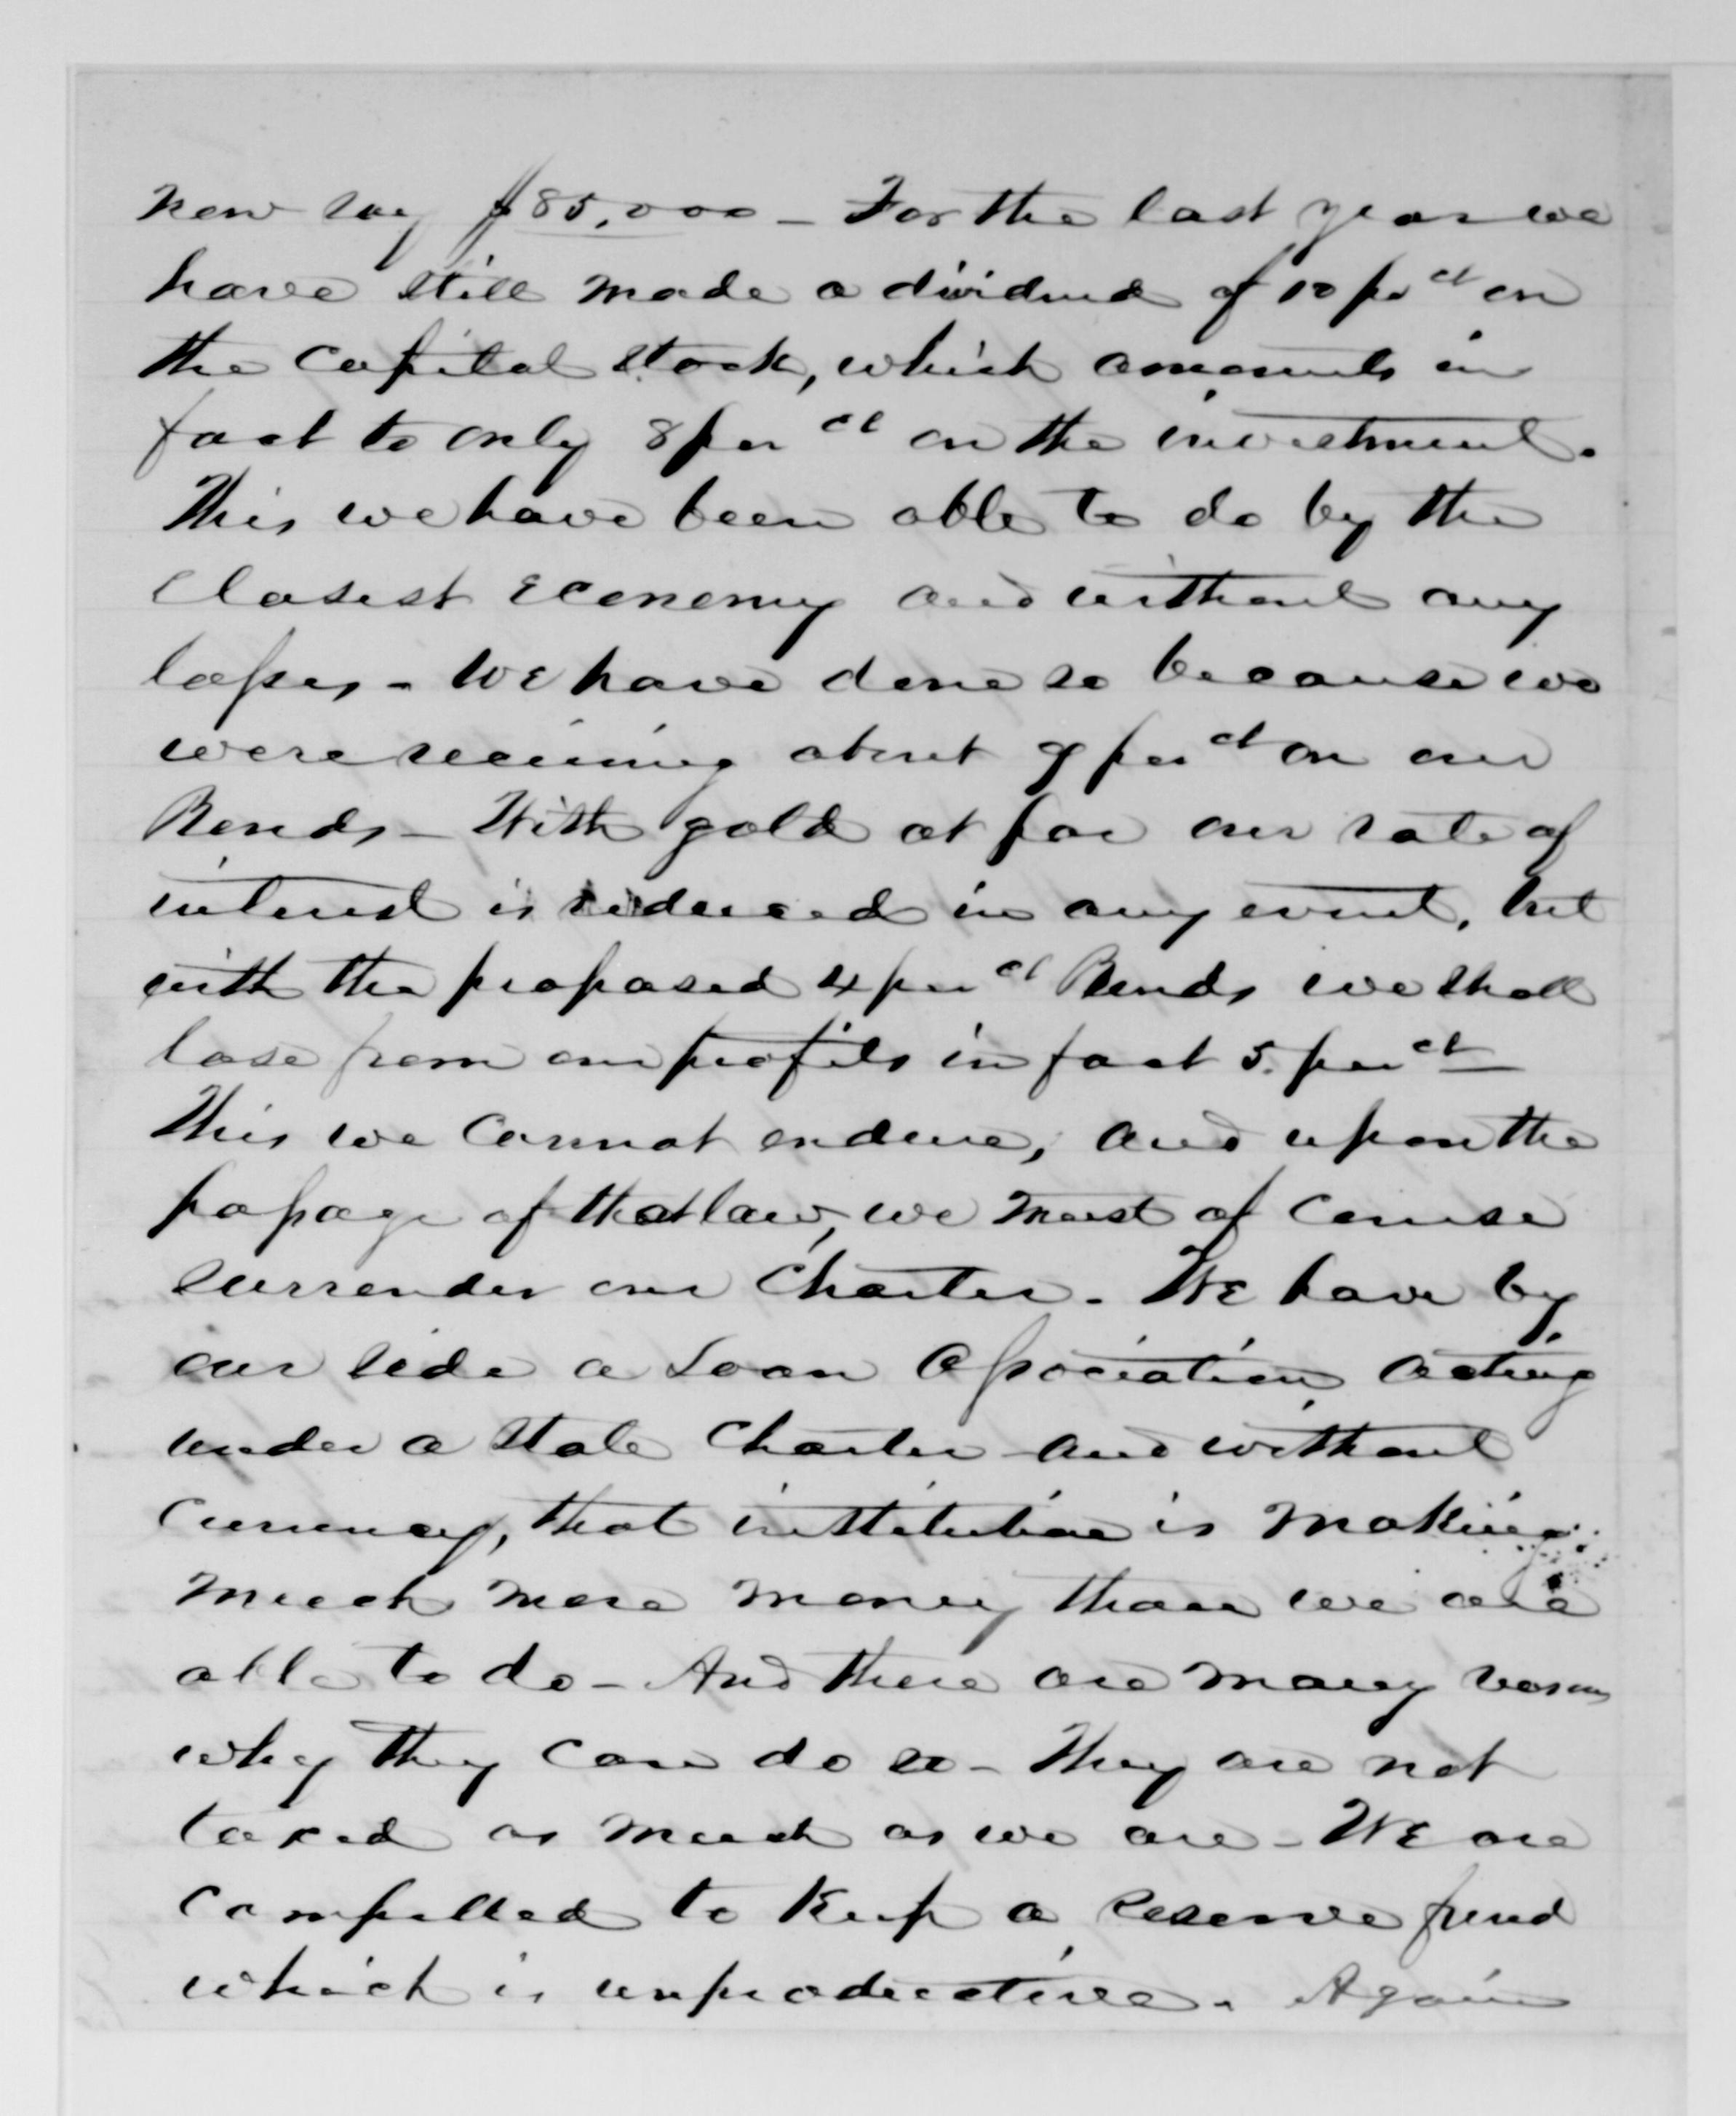 now say $85,000 - For the last year we
have still made a dividend of 10 pr ct on
the Capital Stock, which amounts in
fact to only 8 per ct on the investment.
This we have been able to do by the
closest economy and without any
losses - We have done so because we
were receiving about 9 per ct on our
Bonds - With gold at par our rate of
interest is reduced in any event, but
with the proposed 4 per ct Bonds we shall
lose from our profits in fact 5. per ct
This we cannot endure, and upon the
passage of that law, we must of course
surrender our Charter. We have by
our side a Loan Association acting
under a State Charter and without
Currency, that institution is making
much more money than we are
able to do - And there are many reasons
why they can do so - They are not
taxed as much as we are - We are
compelled to keep a reserve fund
which is unproductive. Again